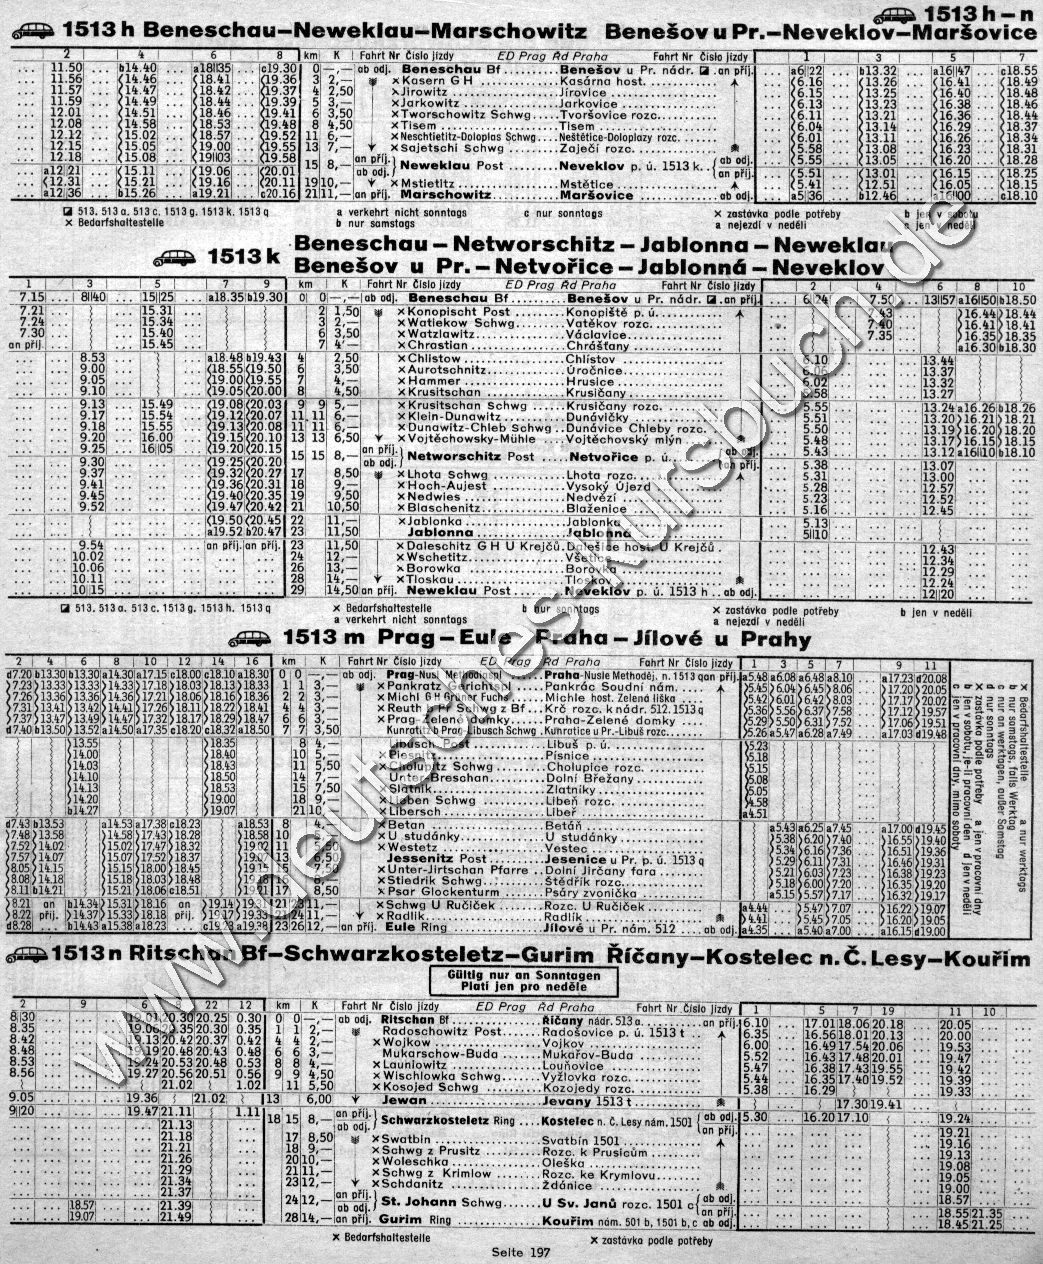 1513 h – n
1513 h Beneschau–Neweklau–Marschowitz Benešov u Pr.–Neveklov–Maršovice
2 4 6 8 km K Fahrt Nr Číslo jízdy ED Prag Řd Praha Fahrt Nr Číslo jízdy 1 3 5 7
11.50 b14.40 a18 35 c19.30 0 –,– ab odj. Beneschau Bf Benešov u Pr. nádr. an příj. a6 22 b13.32 a16 47 c18.55
11.56 14.46 18.41 19.36 3 2,– × Kasern G H Kasárna host. 6.16 13.26 16.41 18.49
11.57 14.47 18.42 19.37 4 2,50 × Jirowitz Jírovice 6.15 13.25 16.40 18.48
11.59 14.49 18.44 19.39 5 3,– × Jarkowitz Jarkovice 6.13 13.23 16.38 18.46
12.01 14.51 18.46 19.41 6 3,50 × Tworschowitz Schwg Tvoršovice rozc. 6.11 13.21 16.36 18.44
12.08 14.58 18.53 19.48 8 4,50 × Tisem Tisem 6.04 13.14 16.29 18.37
12.12 15.02 18.57 19.52 11 6,– × Neschtietitz-Doloplas Schwg Neštětice-Doloplazy rozc. 6.01 13.11 16.26 18.34
12.15 15.05 19.00 19.55 13 7,– × Sajetschi Schwg Zaječí rozc. 5.58 13.08 16.23 18.31
12.18 15.08 19 03 19.58 15 8,– an příj. Neweklau Post Neveklov p. ú. 1513 k. ab odj. 5.55 13.05 16.20 18.28
a12 21 15.11 19.06 20.01 ab odj. an příj. 5.51 13.01 16.15 18.25
12.31 15.21 19.16 20.11 19 10,– × Mstietitz Mstětice 5.41 12.51 16.05 18.15
a12 36 b15.26 a19.21 c20.16 21 11,– an příj. Marschowitz Maršovice ab odj. a5 36 b12.46 a16 00 c18.10
513. 513 a. 513 c. 1513 g. 1513 k. 1513 q a verkehrt nicht sonntags c nur sonntags × zastávka podle potřeby b jen v sobotu
× Bedarfshaltestelle b nur samstags a nejezdí v neděli c jen v neděli
1513 k Beneschau – Networschitz – Jablonna – Neweklau
Benešov u Pr. – Netvořice – Jablonná – Neveklov
1 3 5 7 9 km K Fahrt Nr Číslo jízdy ED Prag Řd Praha Fahrt Nr Číslo jízdy 2 4 6 8 10
7.15 8 40 15 25 a18.35 b19.30 0 0 –,– ab odj. Beneschau Bf Benešov u Pr. nádr. an příj. 6 24 7.50 13 57 a16 50 b18.50
7.21 15.31 2 1,50 × Konopischt Post Konopiště p. ú. 7.43 16.44 18.44
7.24 15.34 3 2,– × Watiekow Schwg Vatěkov rozc. 7.40 16.41 18.41
7.30 15.40 6 3,50 × Watzlawitz Václavice 7.35 16.35 18.35
an příj. 15.45 7 4,– × Chrastian Chrášťany a16.30 b18.30
8.53 a18.48 b19.43 4 2,50 × Chlistow Chlístov 6.10 13.44
9.00 18.55 19.50 6 3,50 × Aurotschnitz Úročnice 6.06 13.37
9.05 19.00 19.55 7 4,– × Hammer Hrusice 6.02 13.32
9.10 19.05 20.00 8 4,50 × Krusitschan Krusičany 5.58 13.27
9.13 15.49 19.08 20.03 9 9 5,– × Krusitschan Schwg Krusičany rozc. 5.55 13.24 a16.26 b18.26
9.17 15.54 19.12 20.07 11 11 6,– × Klein-Dunawitz Dunávičky 5.51 13.20 16.21 18.21
9.18 15.55 19.13 20.08 11 11 6,– × Dunawitz-Chleb Schwg Dunávice Chleby rozc. 5.50 13.19 16.20 18.20
9.20 16.00 19.15 20.10 13 13 6,50 × Vojtěchowsky-Mühle Vojtěchovský mlýn 5.48 13.17 16.15 18.15
9.25 16 05 19.20 20.15 15 15 8,– an příj. Networschitz Post Netvořice p. ú. ab odj. 5.43 13.12 a16 10 b18.10
9.30 19.25 20.20 ab odj. an příj. 5.38 13.07
9.37 19.32 20.27 17 8,50 × Lhota Schwg Lhota rozc. 5.31 13.00
9.41 19.36 20.31 18 9,– × Hoch-Aujest Vysoký Újezd 5.28 12.57
9.45 19.40 20.35 19 9,50 × Nedwies Nedvězí 5.23 12.52
9.52 19.47 20.42 21 10,50 × Blaschenitz Blaženice 5.16 12.45
19.50 20.45 22 11,– × Jablonka Jablonka 5.13
a19.52 b20.47 23 11,50 Jablonna Jablonná 5 10
9.54 an příj. an příj. 23 11,50 × Daleschitz G H U Krejčů Dalešice host. U Krejčů 12.43
10.02 24 12,– × Wschetitz Všetice 12.34
10.06 26 13,– × Borowka Borovka 12.29
10.11 28 14,– × Tloskau Tloskov 12.24
10 15 29 14,50 an příj. Neweklau Post Neveklov p. ú. 1513 h ab odj. 12 20
513. 513 a. 513 c. 1513 g. 1513 h. 1513 q × Bedarfshaltestelle b nur sonntags × zastávka podle potřeby b jen v neděli
a verkehrt nicht sonntags a nejezdí v neděli
1513 m Prag – Eule Praha – Jílové u Prahy
2 4 6 8 10 12 14 16 km K Fahrt Nr Číslo jízdy ED Prag Řd Praha Fahrt Nr Číslo jízdy 1 3 5 7 9 11
d7.20 b13.30 b13.30 a14.30 a17.15 c18.00 c18.10 a18.30 0 0 –,– ab odj. Prag-Nusle Methodpl Praha-Nusle Methoděj. n. 1513 q an příj. a5.48 a6.08 a6.48 a8.10 a17.23 d20.08
7.23 13.33 13.33 14.33 17.18 18.03 18.13 18.33 1 1 3,– × Pankratz Gerichtspl Pankrác Soudní nám. 5.45 6.04 6.45 8.06 17.20 20.05
7.26 13.36 13.36 14.36 17.21 18.06 18.16 18.36 2 2 3,– × Michl G H Grüner Fuchs Michle host. Zelená liška 5.42 6.01 6.42 8.03 17.17 20.02
7.31 13.41 13.42 14.41 17.26 18.11 18.22 18.41 4 4 3,– × Reuth Schwg z Bf Krč rozc. k nádr. 512. 1513 q 5.36 5.56 6.37 7.58 17.12 19.57
7.37 13.47 13.49 14.47 17.32 18.17 18.29 18.47 6 6 3,– × Prag-Zelené domky Praha-Zelené domky 5.29 5.50 6.31 7.52 17.06 19.51
d7.40 b13.50 13.52 a14.50 a17.35 c18.20 c18.32 a18.50 7 7 3,50 Kunratitz b Prag-Libusch Schwg Kunratice u Pr.-Libuš rozc. 5.26 a5.47 a6.28 a7.49 a17.03 d19.48
13.55 18.35 8 4,– Libusch Post Libuš p. ú. 5.23
14.00 18.40 10 5,– × Piesnitz Písnice 5.18
14.03 18.43 11 5,50 × Cholupitz Schwg Cholupice rozc. 5.15
14.10 18.50 14 7,– × Unter Breschan Dolní Břežany 5.08
14.13 18.53 15 7,50 × Slatnik Zlatníky 5.05
14.20 19.00 18 9,– × Lieben Schwg Libeň rozc. 4.58
b14.27 19.07 21 10,– × Libersch Libeř a4.51
d7.43 b13.53 a14.53 a17.38 c18.23 a18.53 8 4,– × Betan Betáň a5.43 a6.25 a7.45 a17.00 d19.45
7.48 13.58 14.58 17.43 18.28 18.58 10 5,– × U studánky U studánky 5.38 6.20 7.40 16.55 19.40
7.52 14.02 15.02 17.47 18.32 19.02 11 5,50 × Westetz Vestec 5.34 6.16 7.36 16.51 19.36
7.57 14.07 15.07 17.52 18.37 19.07 13 6,50 Jessenitz Post Jesenice u Pr. p. ú. 1513 q 5.29 6.11 7.31 16.46 19.31
8.05 14.15 15.15 18.00 18.45 19.15 15 7,50 × Unter-Jirtschan Pfarre Dolní Jirčany fara 5.21 6.03 7.23 16.38 19.23
8.08 14.18 15.18 18.03 18.48 19.18 16 8,– × Stiedrik Schwg Štědřík rozc. 5.18 6.00 7.20 16.35 19.20
8.11 b14.21 15.21 18.06 c18.51 19.21 17 8,50 × Psar Glockenturm Psáry zvonička a5.15 5.57 7.17 16.32 19.17
8.21 an b14.34 15.31 18.16 an 19.14 19.31 × Schwg U Ručiček Rozc. U Ručiček a4.44 5.47 7.07 16.22 19.07
8.22 příj. 14.37 15.33 18.18 příj. 19.17 19.33 11,– × Radlik Radlík 4.41 5.45 7.05 16.20 19.05
d8.28 b14.43 a15.38 a18.23 c19.23 a19.38 23 26 12,– an příj. Eule Ring Jílové u Pr. nám. 512 ab odj. a4.35 a5.40 a7.00 a16.15 d19.00
× Bedarfshaltestelle a nur werktags
b nur samstags, falls Werktag
c nur an werktagen, außer Samstag
d nur sonntags
× zastávka podle potřeby a jen v pracovní dny
b jen v sobotu, je-li pracovní den d jen v neděli
c jen v pracovní dny, mimo soboty
1513 n Ritschan Bf–Schwarzkosteletz–Gurim Říčany–Kostelec n. Č. Lesy–Kouřim
Gültig nur an Sonntagen
Platí jen pro neděle
2 9 6 8 22 12 km K Fahrt Nr Číslo jízdy ED Prag Řd Praha Fahrt Nr Číslo jízdy 1 5 7 19 11 10
8 30 19.01 20.30 20.25 0.30 0 0 –,– ab odj. Ritschan Bf Říčany nádr. 513 a. an příj. 6.10 17.01 18.06 20.18 20.05
8.35 19.06 20.35 20.30 0.35 1 1 2,– Radoschowitz Post Radošovice p. ú. 1513 t 6.35 16.56 18.01 20.13 20.00
8.42 19.13 20.42 20.37 0.42 4 4 2,– × Wojkow Vojkov 6.00 16.49 17.54 20.06 19.53
8.48 19.19 20.48 20.43 0.48 6 6 3,– Mukarschow-Buda Mukařov-Buda 5.52 16.43 17.48 20.01 19.47
8.53 19.24 20.53 20.48 0.53 8 8 4,– × Launiowitz Louňovice 5.47 16.38 17.43 19.55 19.42
8.56 19.27 20.56 20.51 0.56 9 9 4,50 × Wischlowka Schwg Vyžlovka rozc. 5.44 16.35 17.40 19.52 19.39
21.02 1.02 11 5,50 × Kosojed Schwg Kozojedy rozc. 5.38 16.29 19.33
9.05 19.36 21.02 13 6,00 Jewan Jevany 1513 t 17.30 19.41
9 20 19.47 21.11 1.11 18 15 8,– an příj. Schwarzkosteletz Ring Kostelec n. Č. Lesy nám. 1501 ab odj. 5.30 16.20 17.10 19.24
21.13 ab odj. an příj. 19.21
21.18 17 8,50 × Swatbin Svatbín 1501 19.16
21.21 18 9,– × Schwg z Prusitz Rozc. k Prusicům 19.13
21.26 20 10,– × Woleschka Oleška 19.08
21.29 21 11,– × Schwg z Krimlow Rozc. ke Krymlovu 19.05
21.34 23 12,– × Schdanitz Ždánice 19.00
21.37 24 12,– an příj. St. Johann Schwg U Sv. Janů rozc. 1501 c ab odj. 18.57
18.57 21.39 ab odj. an příj. 18.55 21.35
19.07 21.49 28 14,– an příj. Gurim Ring Kouřim nám. 501 b, 1501 b, c ab odj. 18.45 21.25
× Bedarfshaltestelle × zastávka podle potřeby
Seite 197
www.deutsches-kursbuch.de